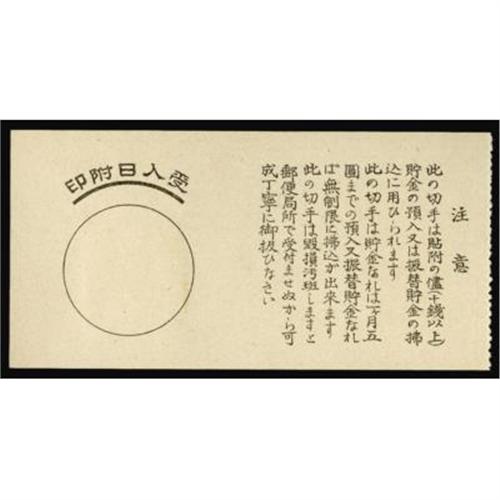 注意
此の切手は貼附の儘(十銭以上)
貯金の預入又は振替貯金の拂
込に用ひられます
此の切手は貯金なれば一ヶ月五
圓までの預入又振替貯金なれ
ば無制限に拂込が出來ます
此の切手は毀損汚斑しますと
郵便局所で受付ませぬから可
成丁寧に御扱ひなさい
受入日附印